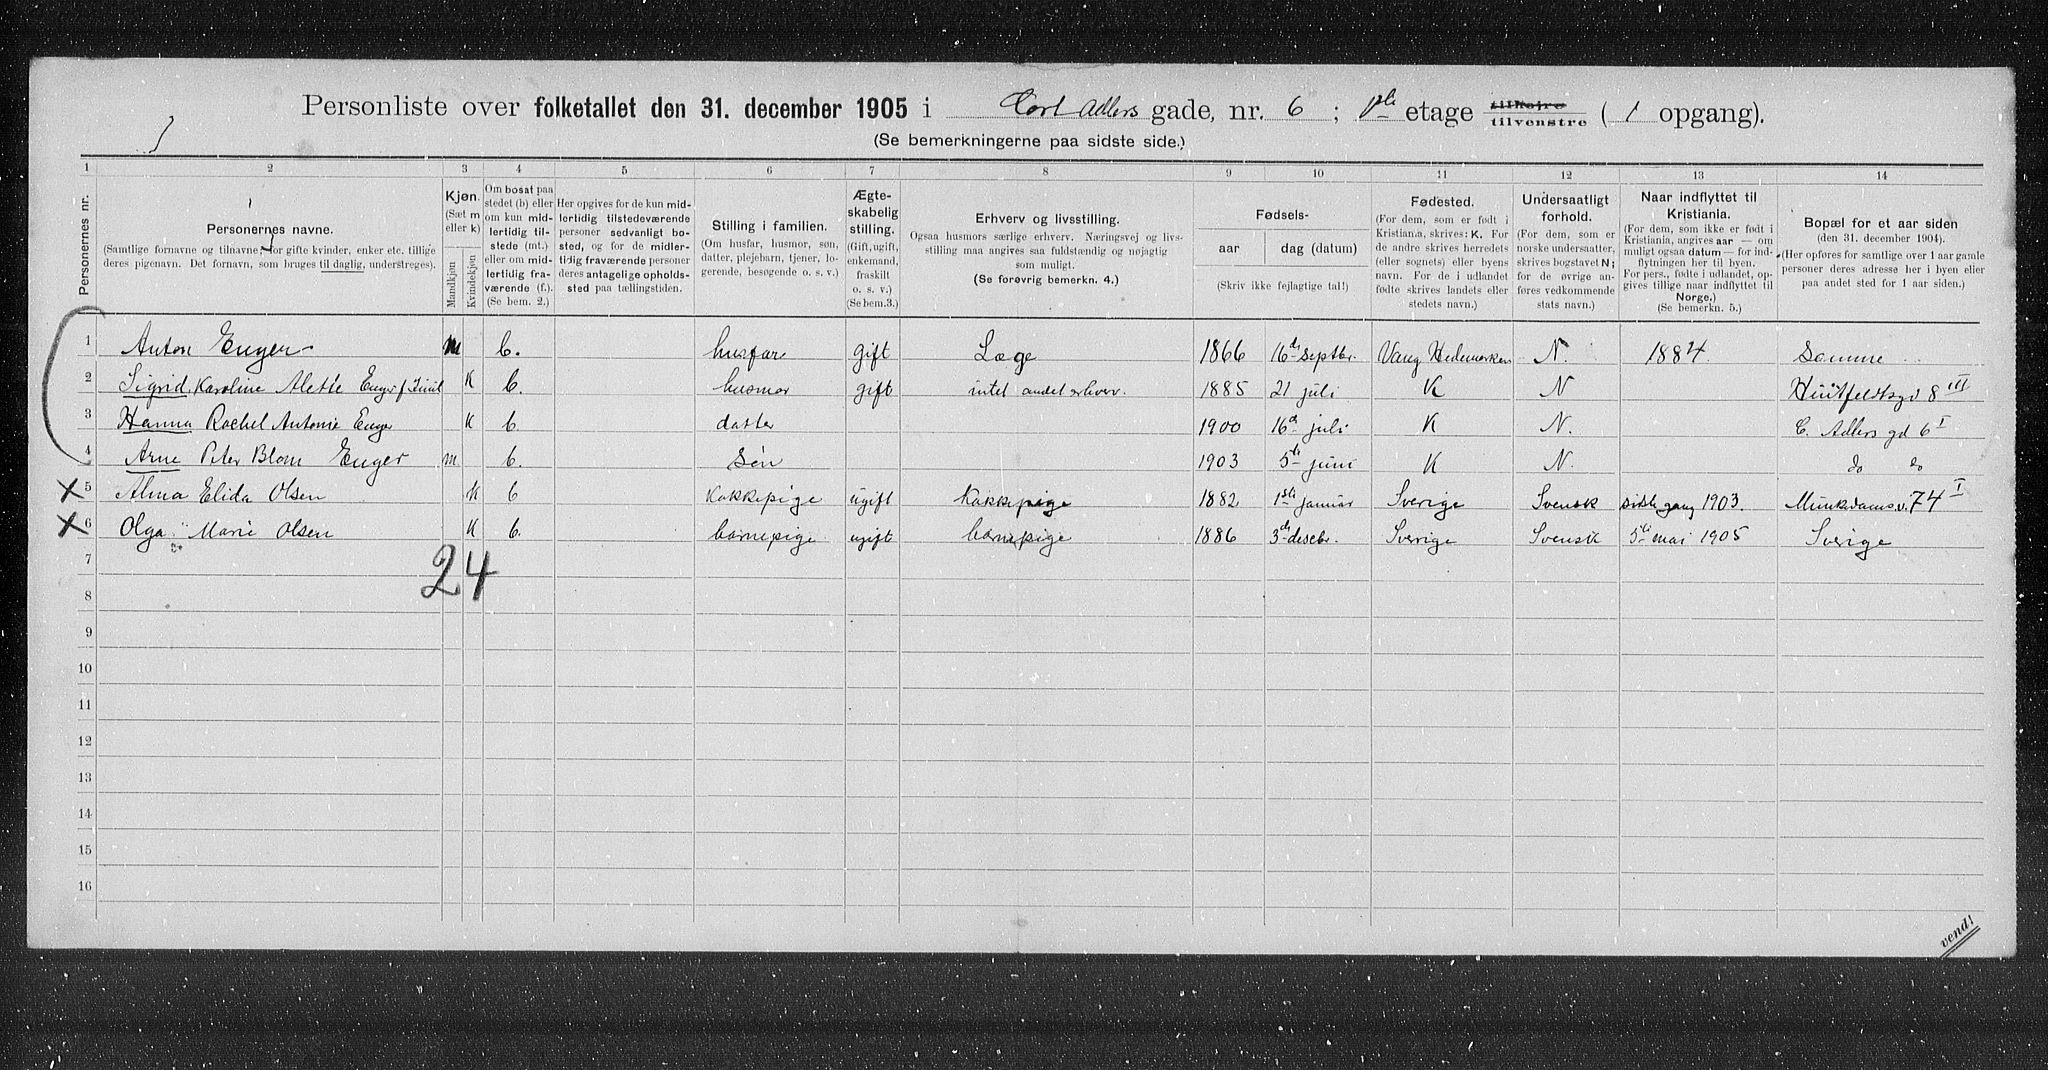 Personliste over folketallet den 31. december 1905 i Cort Adlers gade, nr. 6 ; 1ste etage tilhøjre tilvenstre ( 1 opgang).
(Se bemerkningerne paa sidste side.)
1 2 3 4 5 6 7 8 9 10 11 12 13 14
Personernes nr.
Personernes navne.
(Samtlige fornavne og tilnavne, for gifte kvinder, enker etc. tillige
deres pigenavn. Det fornavn, som bruges til daglig, understreges).
Kjøn.
(Sæt m
eller k)
Mandkjøn
Kvindekjøn
Om bosat paa
stedet (b) eller
om kun mid-
lertidig til-
stede (mt.)
eller om mid-
lertidig fra-
værende (f.).
(Se bem. 2.)
Her opgives for de kun mid-
lertidig tilstedeværende
personer sedvanligt bo-
sted, og for de midler-
tidig fraværende personer
deres antagelige opholds-
sted paa tællingstiden.
Stilling i familien.
(Om husfar, husmor, søn,
datter, plejebarn, tjener, lo-
gerende, besøgende o. s. v.)
Ægte-
skabelig
stilling.
(Gift, ugift,
enkemand,
fraskilt
o. s. v.)
(Se bem.3.)
Erhverv og livsstilling.
Ogsaa husmors særlige erhverv. Næringsvej og livs-
stilling maa angives saa fuldstændig og nøjagtig
som muligt.
(Se forøvrig bemerkn. 4.)
Fødsels-
aar dag (datum)
(Skriv ikke fejlagtige tal!)
Fødested.
(For dem, som er født i
Kristiania, skrives: K. For
de andre skrives herredets
(eller sognets) eller byens
navn. For de i udlandet
fødte skrives landets eller
stedets navn.)
Undersaatligt
forhold.
(For dem, som er
norske undersaatter,
skrives bogstavet N;
for de øvrige an-
føres vedkommende
stats navn.)
Naar indflyttet til
Kristiania.
(For dem, som ikke er født i
Kristiania, angives aar — om
muligt ogsaa datum — for ind-
flytningen her til byen.
For pers., fødte i udlandet, op-
gives tillige naar indflyttet til
Norge.)
(Se bemerkn. 5.)
Bopæl for et aar siden
(den 31. december 1904).
(Her opføres for samtlige over 1 aar gamle
personer deres adresse her i byen eller
paa andet sted for 1 aar siden.)
1 Anton Enger m b. husfar gift Læge 1866 16de septbr. Vang Hedemarken N. 1884 Samme
2 Sigrid Karoline Alette Enger f. K b. husmor gift intet andet erhverv. 1885 21 juli K N Huitfeldtsgd 8 III
3 Hanna Rachel Antonie Enger K b. datter 1900 16de juli K N. C. Adlers gd 6 I
4 Arne Peter Blom Enger m b. søn 1903 5te juni K N. do do
5 Alma Elida Olsen K b kokkepige ugift Kokkepige 1882 1ste januar Sverige Svensk sidste gang 1903. Munkdamsv. 74 I
6 Olga Marie Olsen K b. barnepige ugift barnepige 1886 3de decbr. Sverige Svensk 5te mai 1905 Sverige
24
7
8
9
10
11
12
13
14
15
16
vend!